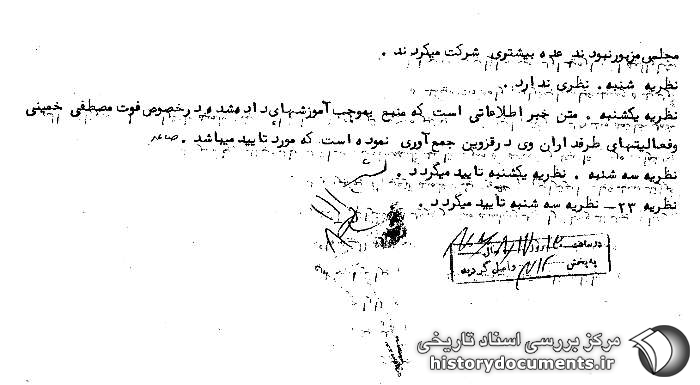 مجلس مزبور نبودند عده بیشتری شرکت میکردند .
نظریه شنبه . نظری ندارد .
نظریه یکشنبه . متن خبر اطلاعاتی است که منبع بموجب آموزشهای داده شده در خصوص فوت مصطفی خمینی
وفعالیتهای طرفداران وی در قزوین جمع‌آوری نموده است که مورد تایید میباشد .
نظریه سه شنبه . نظریه یکشنبه تایید میگردد .
نظریه ۲۳ـ نظریه سه شنبه تایید میگردد .
در ساعت روز
به بخش ۳۱۲ واصل گردید
مرکز بررسی اسناد تاریخی
historydocuments.ir